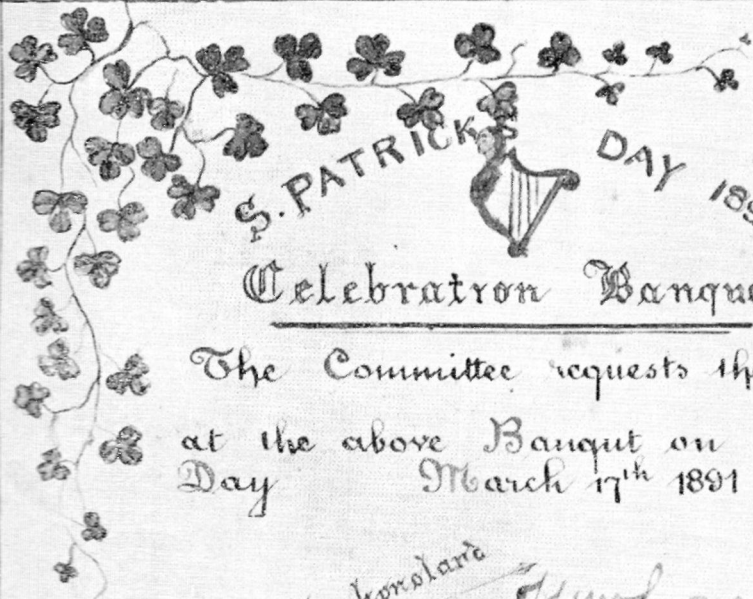 S. PATRICK'S DAY 189
Celebration Banque
The Committee requests th
at the above Banqut on
Day March 17th 1891